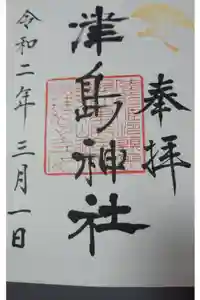 奉拝
津島神社
令和二年三月一日